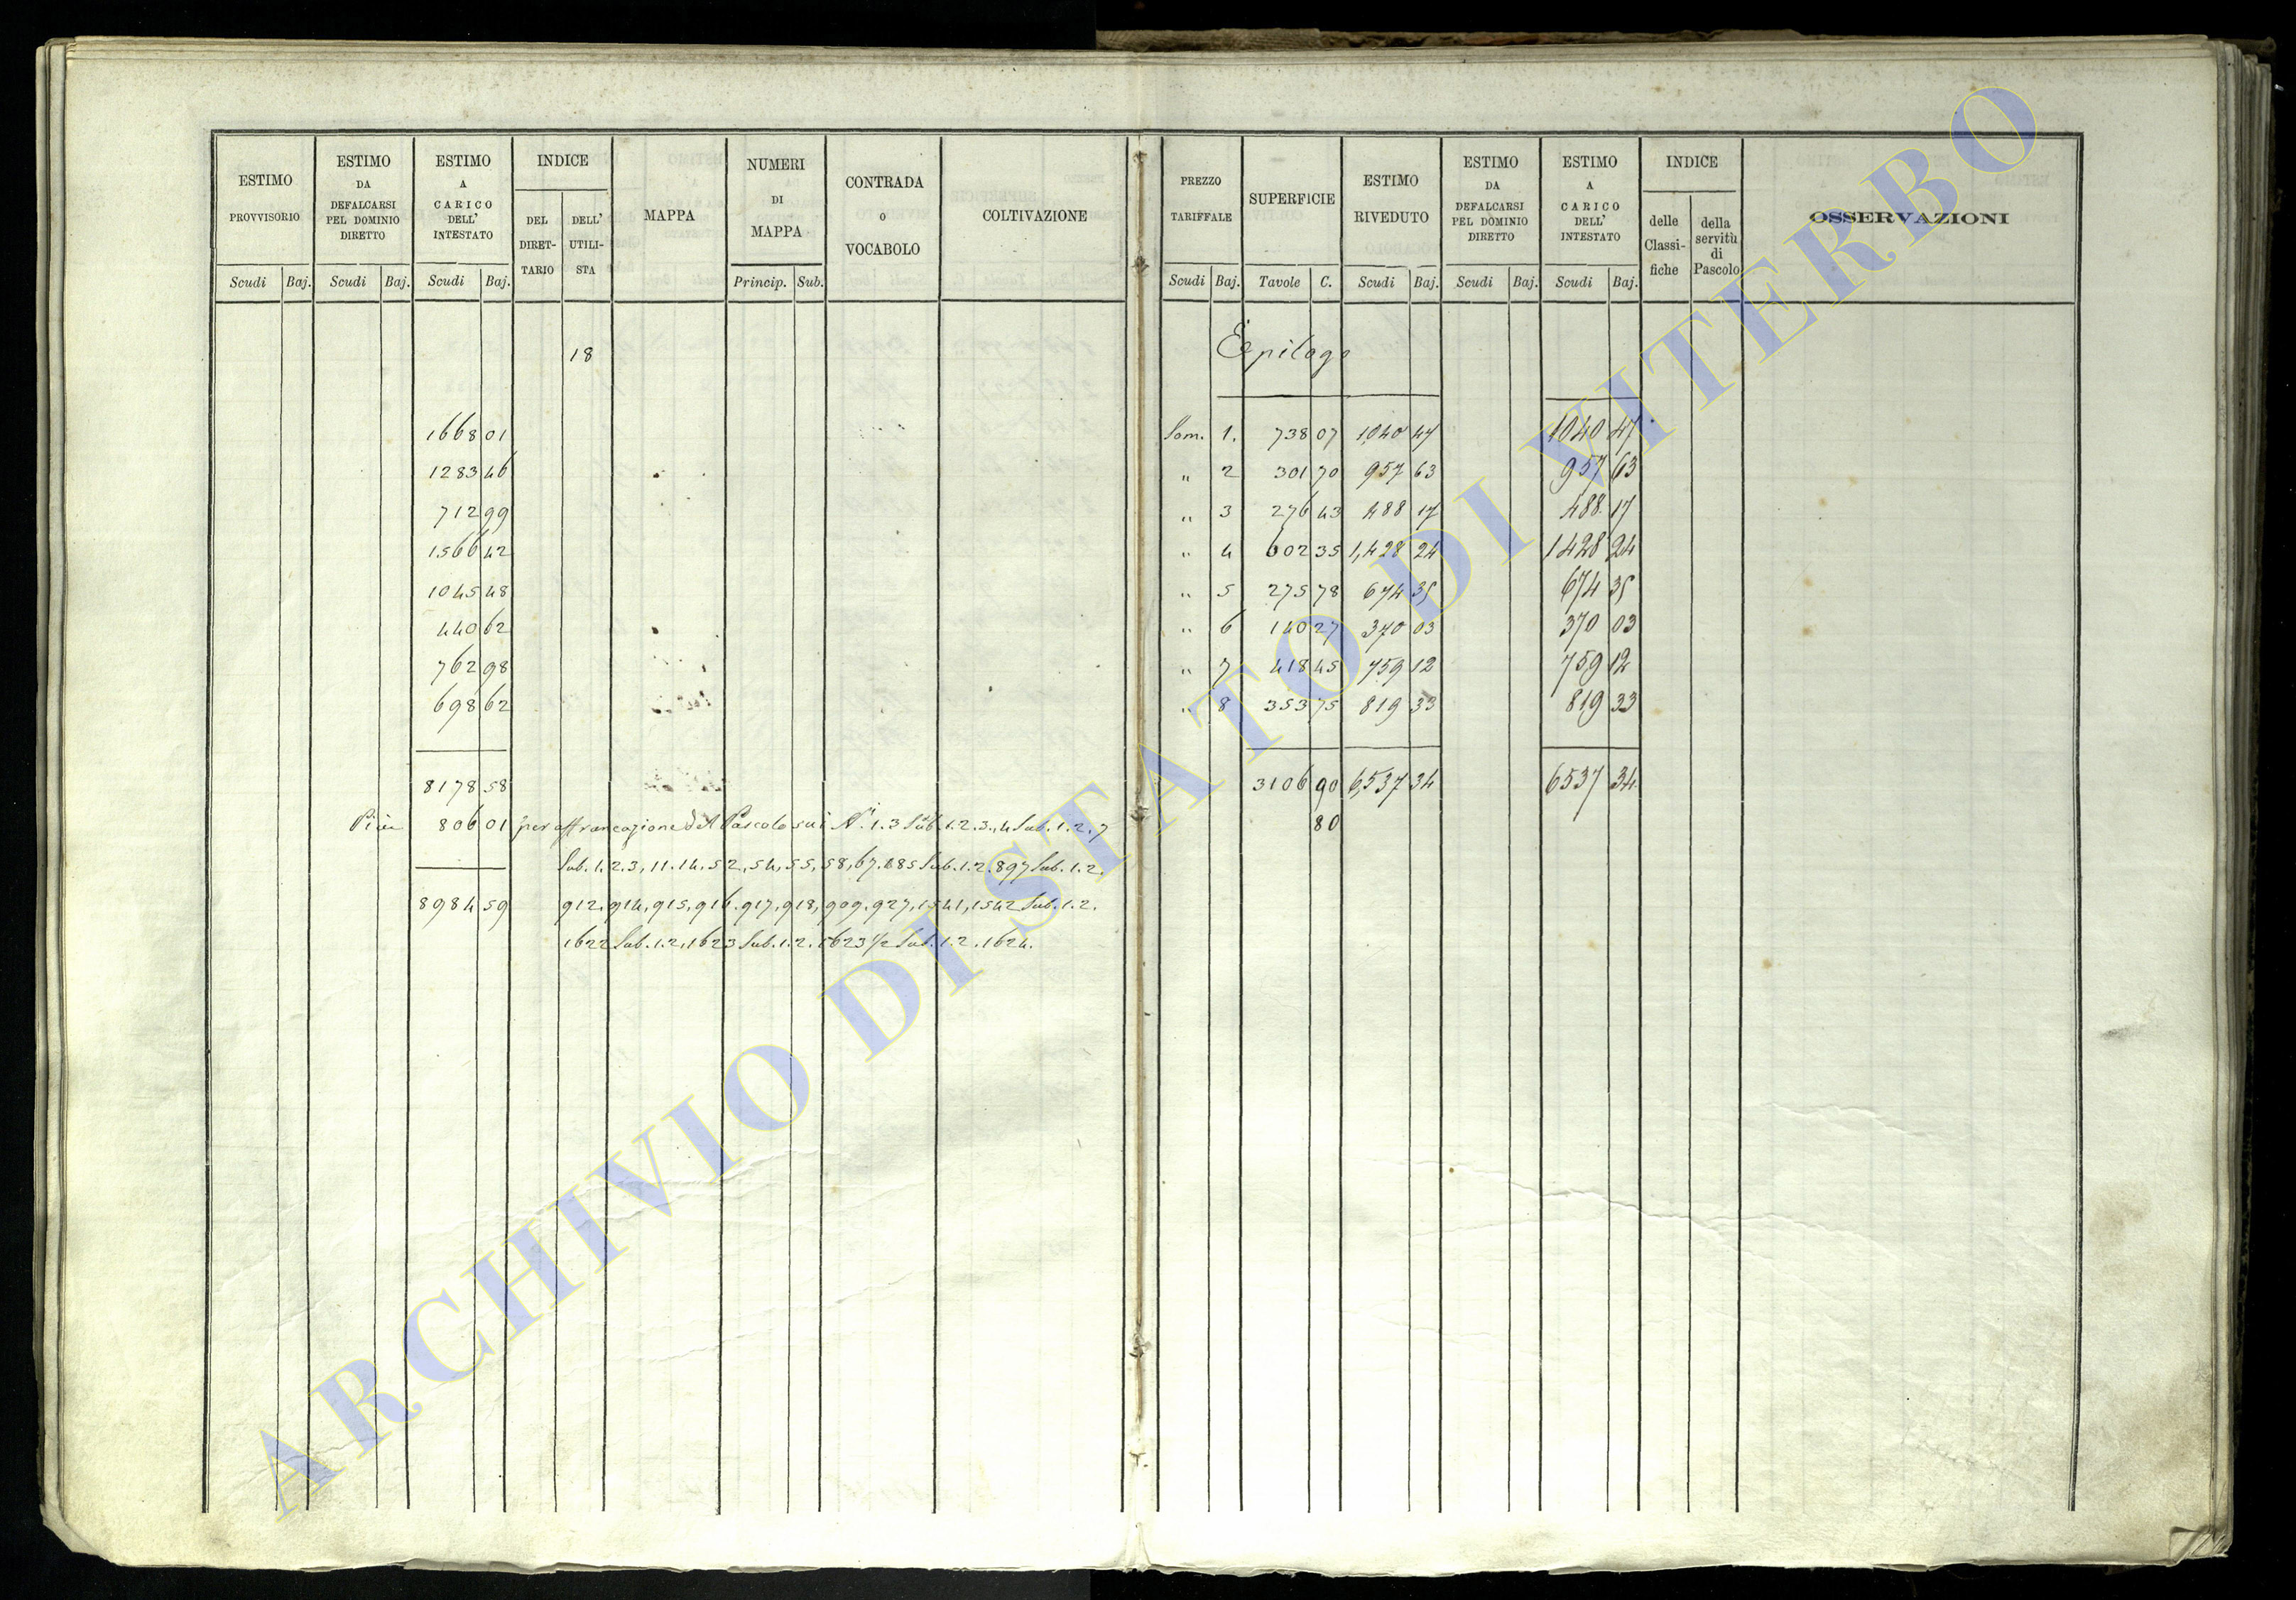 ESTIMO PROVVISORIO Scudi Baj.
ESTIMO DA DEFALCARSI PEL DOMINIO DIRETTO Scudi Baj.
ESTIMO A CARICO DELL' INTESTATO Scudi Baj.
INDICE DEL DIRET- TARIO DELL' UTILI- STA
MAPPA
NUMERI DI MAPPA Princip. Sub.
CONTRADA o VOCABOLO
COLTIVAZIONE
18
1668 01
1283 46
712 99
1566 42
1045 48
440 62
762 98
698 62
8178 58
Più 806 01 per affrancazione del Pascolo sui Ni. 1. 3 Sub. 1. 2. 3., 4 Sub. 1. 2. 7
Sub. 1. 2. 3, 11. 14, 52, 54, 55, 58, 67. 685 Sub. 1. 2. 897 Sub. 1. 2.
8984 59 912. 914, 915, 916. 917, 918, 909. 927, 1541, 1542 Sub. 1. 2.
1622 Sub. 1. 2, 1623 Sub. 1. 2. 1623 1/2 Sub. 1. 2. 1624.
PREZZO TARIFFALE Scudi Baj.
SUPERFICIE Tavole C.
ESTIMO RIVEDUTO Scudi Baj.
ESTIMO DA DEFALCARSI PEL DOMINIO DIRETTO Scudi Baj.
ESTIMO A CARICO DELL' INTESTATO Scudi Baj.
INDICE delle Classi- fiche della servitù di Pascolo
OSSERVAZIONI
Epilogo
Som. 1. 738 07 1,040 47 1040 47
" 2 301 70 957 63 957 63
" 3 276 43 488 17 488 17
" 4 602 35 1,428 24 1428 24
" 5 275 78 674 35 674 35
" 6 140 27 370 03 370 03
" 7 418 45 759 12 759 12
" 8 353 75 819 33 819 33
3106 90 6,537 34 6537 34
80
ARCHIVIO DI STATO DI VITERBO